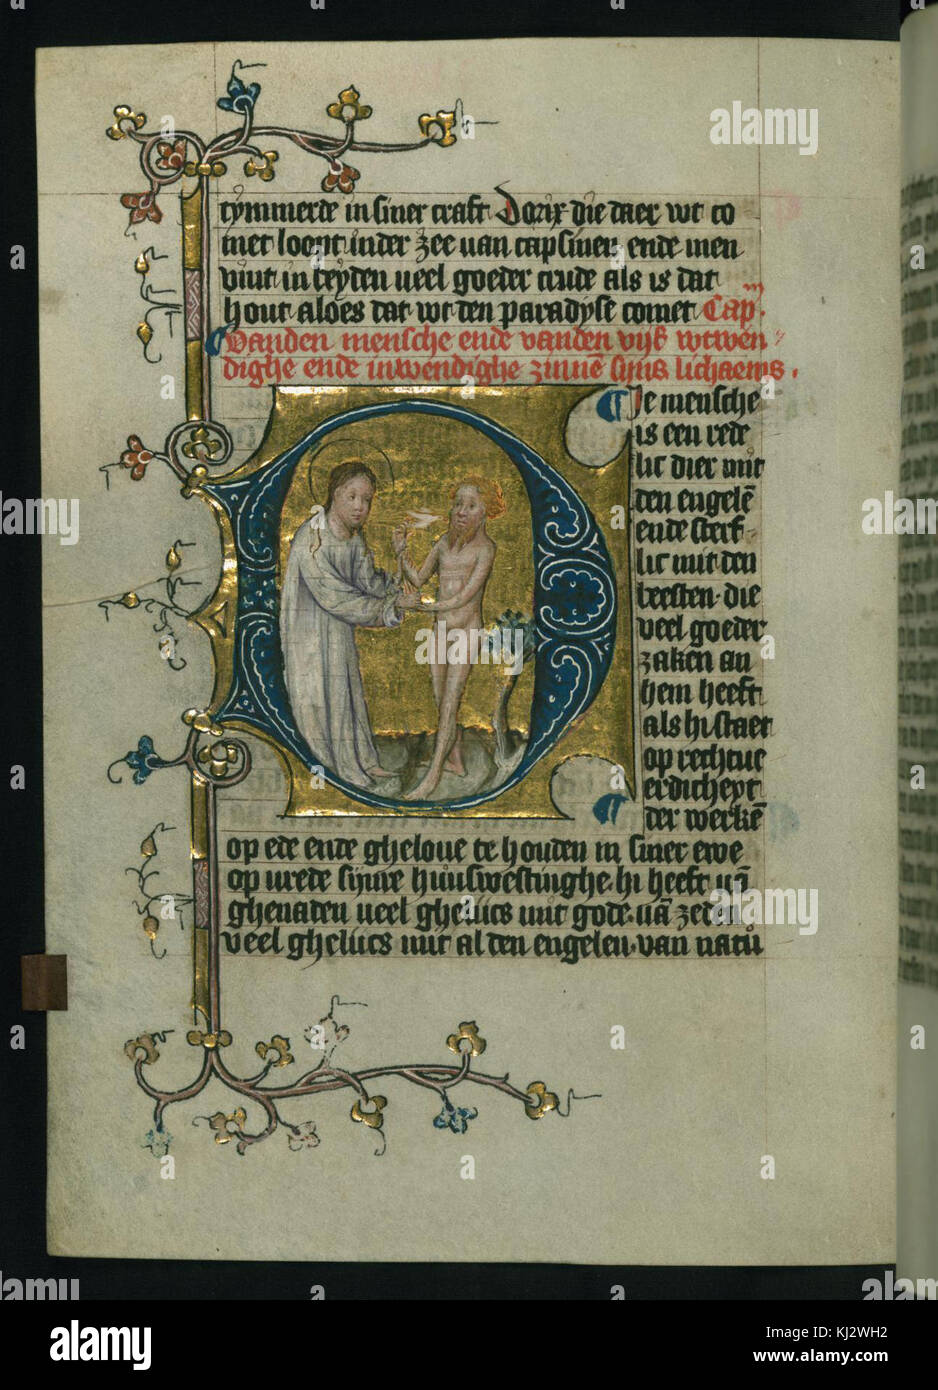 tymmerde in siner craft Dorix die daer wt co
met loopt inder zee van capsinen ende men
vint in beyden veel goeder crude als is dat
hout aloes dat wt den paradyse comet Cap. iii
Vanden mensche ende vanden vijf wtwen
dighe ende inwendighe zinnē sijns lichaems.
Je mensche
is een rede
lic dier mit
den engelē
ende sterf
lic mit den
beesten. die
veel goeder
zaken an
hem heeft
als hi staet
op rechtue
erdicheyt
der werkē
op ede ende ghelove te houden in siner ewe
op vrede synre huuswestinghe. hi heeft vā
ghenaden veel ghelijcs mit gode. vā zeden
veel ghelijcs mit al den engelen. van natu
alamy
alamy
alamy
Image ID: KJ2WH2
www.alamy.com